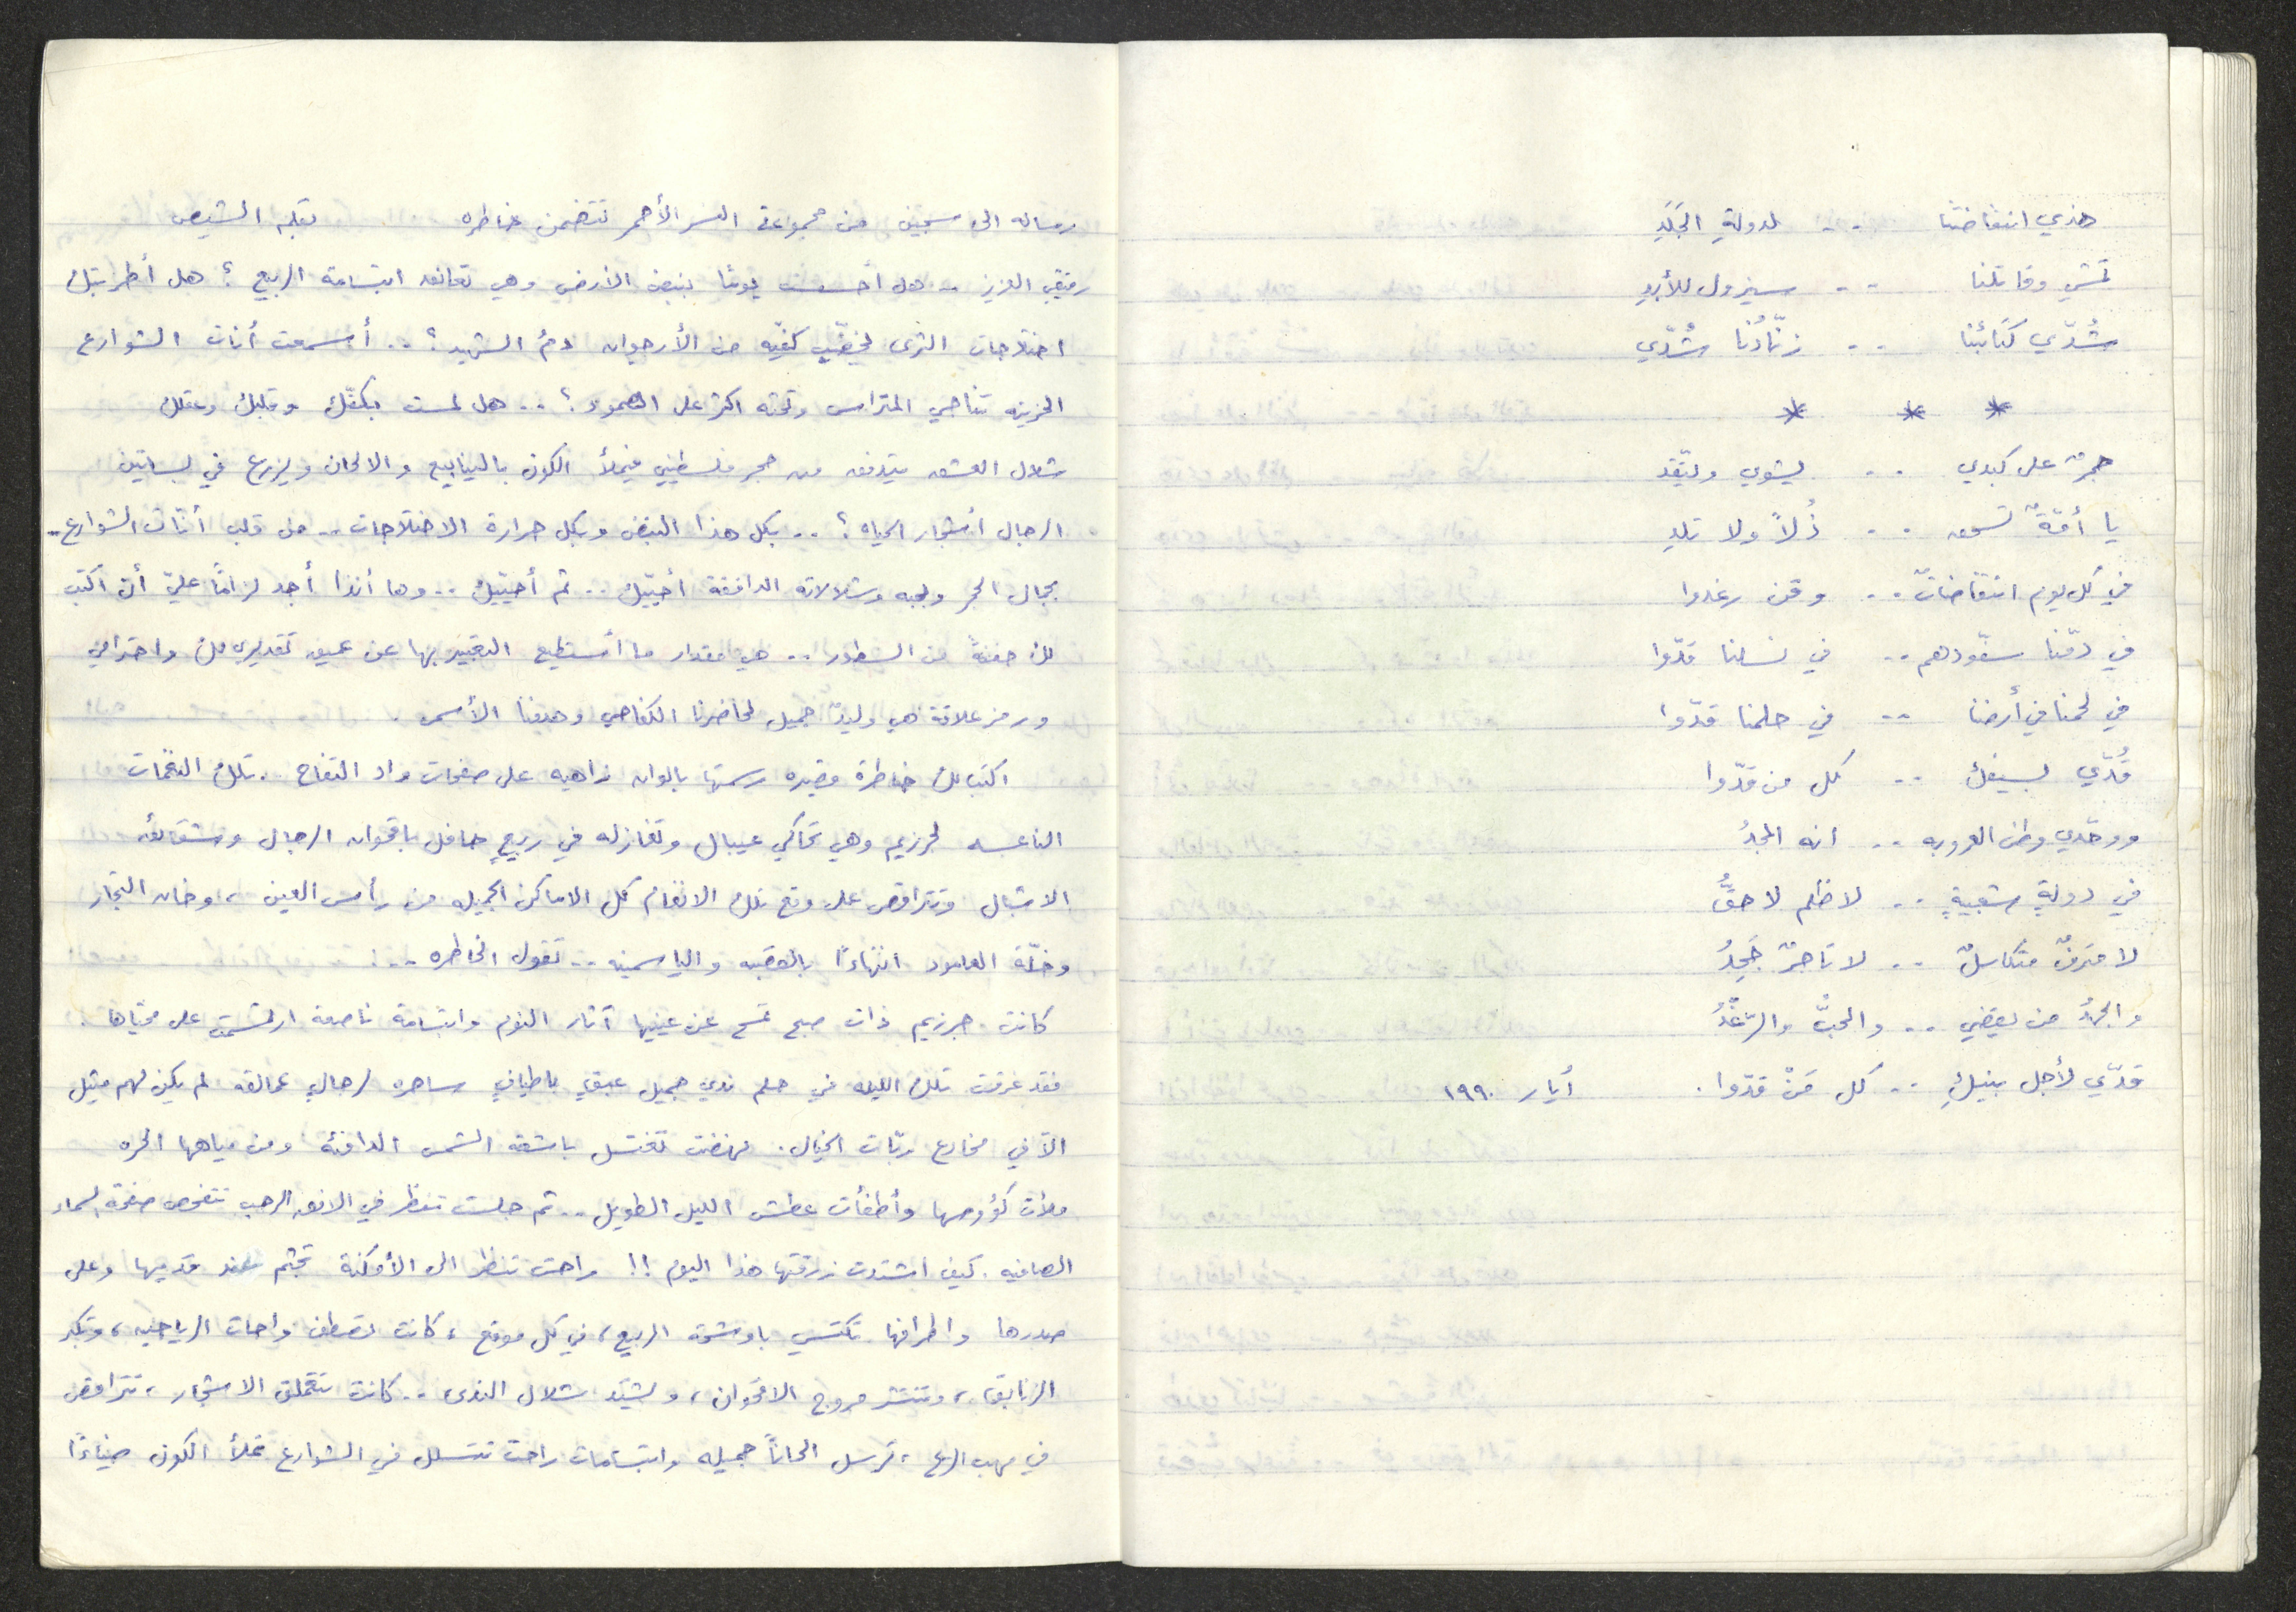 هذي انتفاضتنا .. لدولةِ الجَلَدِ
تمشي وقاتلنا .. سيزول للأبدِ
شُدّي كتائبنا .. زنّادُنا شُدّي
* * *
جمرٌ على كبدي .. يشوي ويتّقد
يا أمّةٌ تسحق .. ذُلاً ولا تلد
في كل يوم انتفاضاتٌ .. وقت رغدوا
في دمّنا سفّودهم .. في نسلنا قدّوا
في لحمنا في أرضنا .. في حلمنا قدّوا
قُدّي بسيفك .. كل من قدّوا
ووحّدي وطن العروبه .. انه المجدُ
في دولةٍ شعبيةٍ .. لا ظلم لا حقُّ
لا مترفٌ متكاسلٌ .. لا تاجرٌ
والجهدُ من بعضي .. والحبُّ والرّغْدُ
قدّي لأجل بنيكِ .. كل مَنْ قدّوا . أيار ١٩٩٠
رساله الى سجين من مجموعة النسر الأحمر تتضمن خاطره بقلم الشيص
رفيقي العزيز .. هل أحسست يوماً بنبض الأرض وهي تعانق ابتسامة الربيع ؟ هل أطربتك
اختلاجات الثرى يخضّب كفّيه من الأرجوان دمُ الشهيد ؟ .. أسمعت أنات الشوارع
الحزينه تناجي المتراس وتحثه اكثر على الصمود ؟ .. هل لمست بكفّك وقلبك وعقلك
شلال العشق يتدفق من حجر فلسطيني فيملأ الكون بالينابيع والالحان ويزرع في بساتين
الرجال اشجار الحياه ؟ .. بكل هذا النبض وبكل حرارة الاختلاجات .. من قلب أنّات الشوارع ..
بجمال الحجر ولهبه وشلالاته الدافقة أحيّيك .. ثم أحيّيك .. وها أنذا أجد لزاماً عليّ أن اكتب
لك حفنةً من السطور .. هي مقدار ما أستطيع التعبير بها عن عميق تقديري لك واحترامي
ورمز علاقة هي وليدٌ جميل لحاضرنا الكفاحي وهدفنا الأسمى .
اكتب لك خاطرة قصيره رسمتها بالوان زاهيه على صفحات واد التفاح .. تلك النغمات
الناعسه لجرزيم وهي تحاكي عيبال وتغازله في ربيعٍ حافل باقحوان الرجال وشقائق
الاشبال وتتراقص على وقع تلك الانغام كل الاماكن الجميله من رأس العين ، وخان التجار
وخلّة العامود انتهاءً بالقصبه والياسمينه .. تقول الخاطره ..:
كانت جرزيم ذات صبح تمسح عن عينيها آثار النوم وابتسامة ناصعة ارتسمت على محيّاها .
فقد غرقت تلك الليله في حلم ندي جميل عبقٍ باطيافٍ ساحره لرجالٍ عمالقه لم يكن لهم مثيل
الاّ في مخادع ربّات الخيال . نهضت تغتسل باشعة الشمس الدافئة ومن مياهها الحره
ملأت كؤوسها وأطفأت عطش الليل الطويل .. ثم جلست تنظر في الافق الرحب تتفحص صفحة السماء
الصافيه . كيف اشتدت زرقتها هذا اليوم !! راحت تنظر الى الأمكنة تجثم عند قدميها وعلى
صدرها واطرافها تكتسي باوشحة الربيع ، في كل موقع ، كانت تصطف واحات الرياحين ، وتكبر
الزنابق ، وتنتشر مروج الاقحوان ، ويشتد شلال الندى .. كانت تتعملق الاشجار ، تتراقص
في مهب الريح ، ترسل الحاناً جميله وابتسامات راحت تتسلل في الشوارع تملأ الكون ضياءً